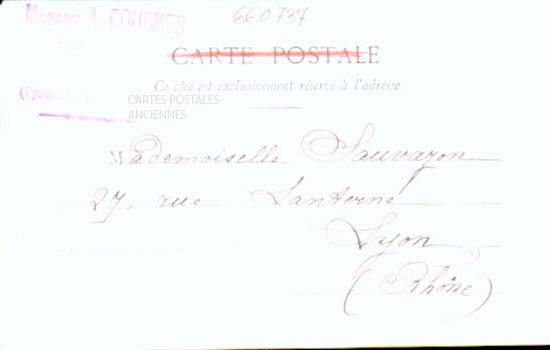 MADAME A.
660737
CARTE POSTALE
Ce côté est exclusivement réservé à l'adresse
CARTES POSTALES
ANCIENNES
Mademoiselle Sauvazon
27, rue Lanterne
Lyon
(Rhône)